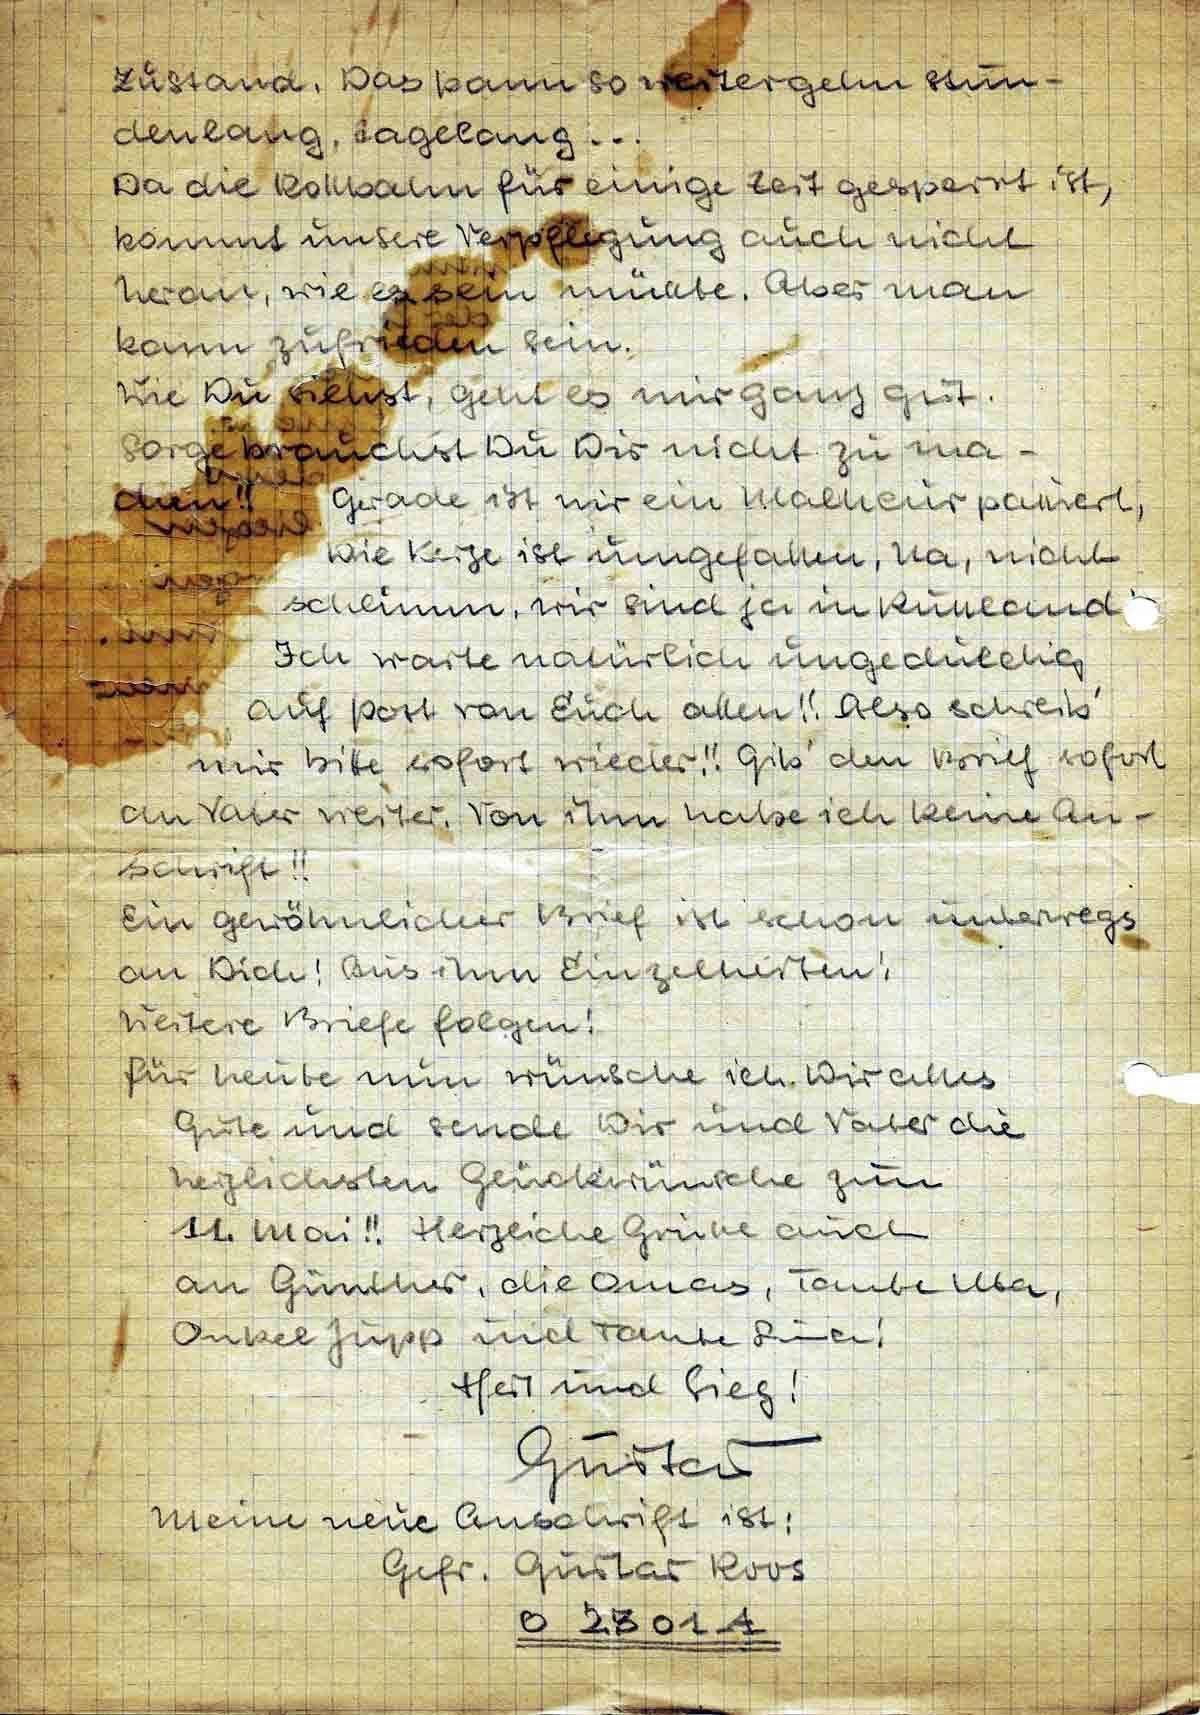 Zustand. Das kann so weitergehn stun-
denlang, tagelang...
Da die Rollbahn für einige Zeit gesperrt ist,
kommt unsere Verpflegung auch nicht
heran, wie es sein müßte. Aber man
kann zufrieden sein.
Wie Du siehst, geht es mir ganz gut.
Sorge brauchst Du Dir nicht zu ma-
chen!! Gerade ist mir ein Malheur passiert,
Die Kerze ist umgefallen, Na, nicht
schlimm, wir sind ja in Rußland!
Ich warte natürlich ungeduldig
auf Post von Euch allen!! Also schreib'
mir bitte sofort wieder!! Gib' den Brief sofort
an Vater weiter. Von ihm habe ich keine An-
schrift!!
Ein gewöhnlicher Brief ist schon unterwegs
an Dich! Aus ihm Einzelheiten!
Weitere Briefe folgen!
Für heute nun wünsche ich Dir alles
Gute und sende Dir und Vater die
herzlichsten Glückwünsche zum
11. Mai!! Herzliche Grüße auch
an Günther, die Omas, Tante
Onkel Jupp und Tante
Heil und Sieg!
Gustav
Meine neue Anschrift ist:
Gefr. Gustav Roos